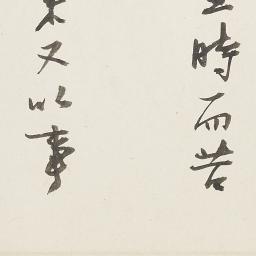 時而苦
又以事